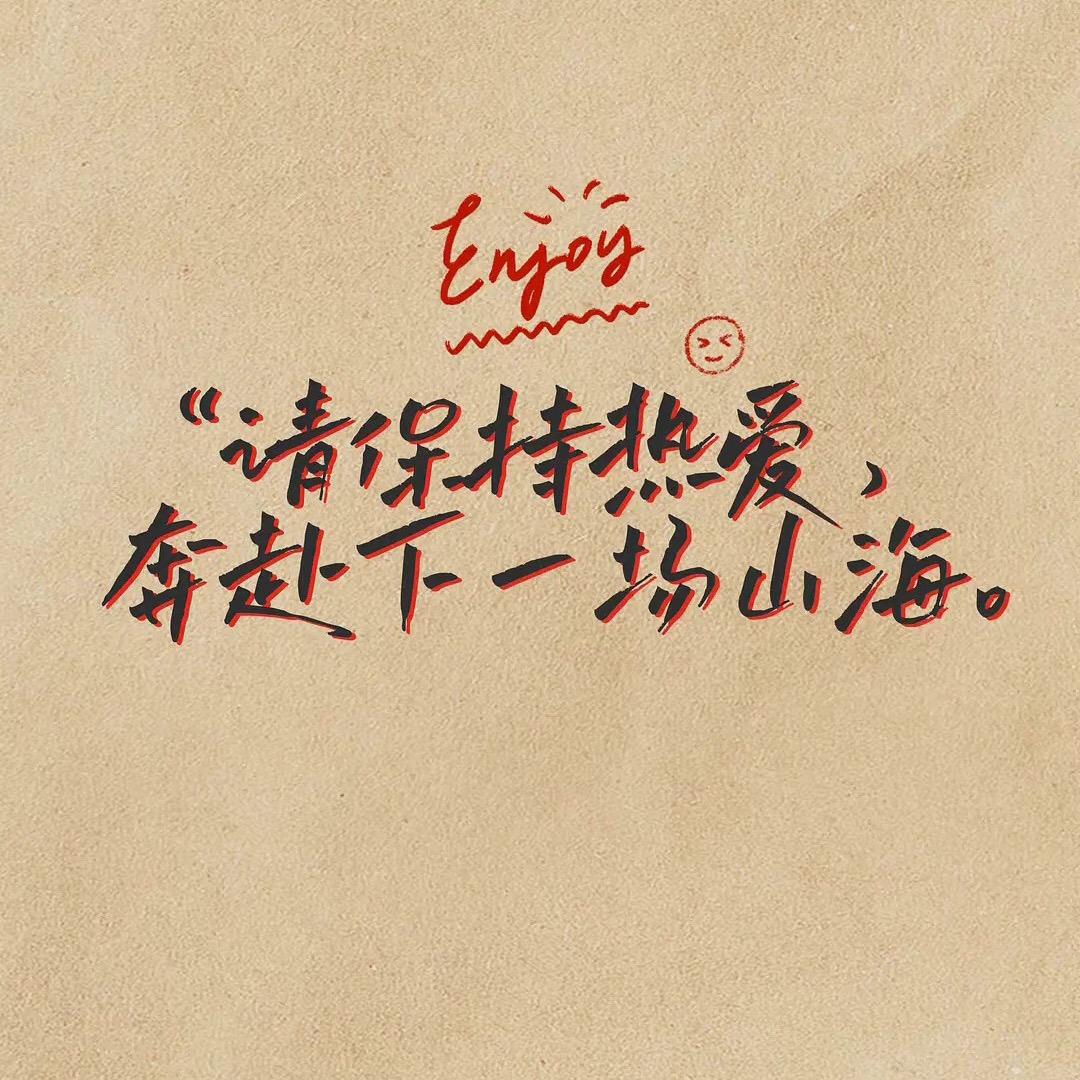 Enjoy
“请保持热爱，
奔赴下一场山海。